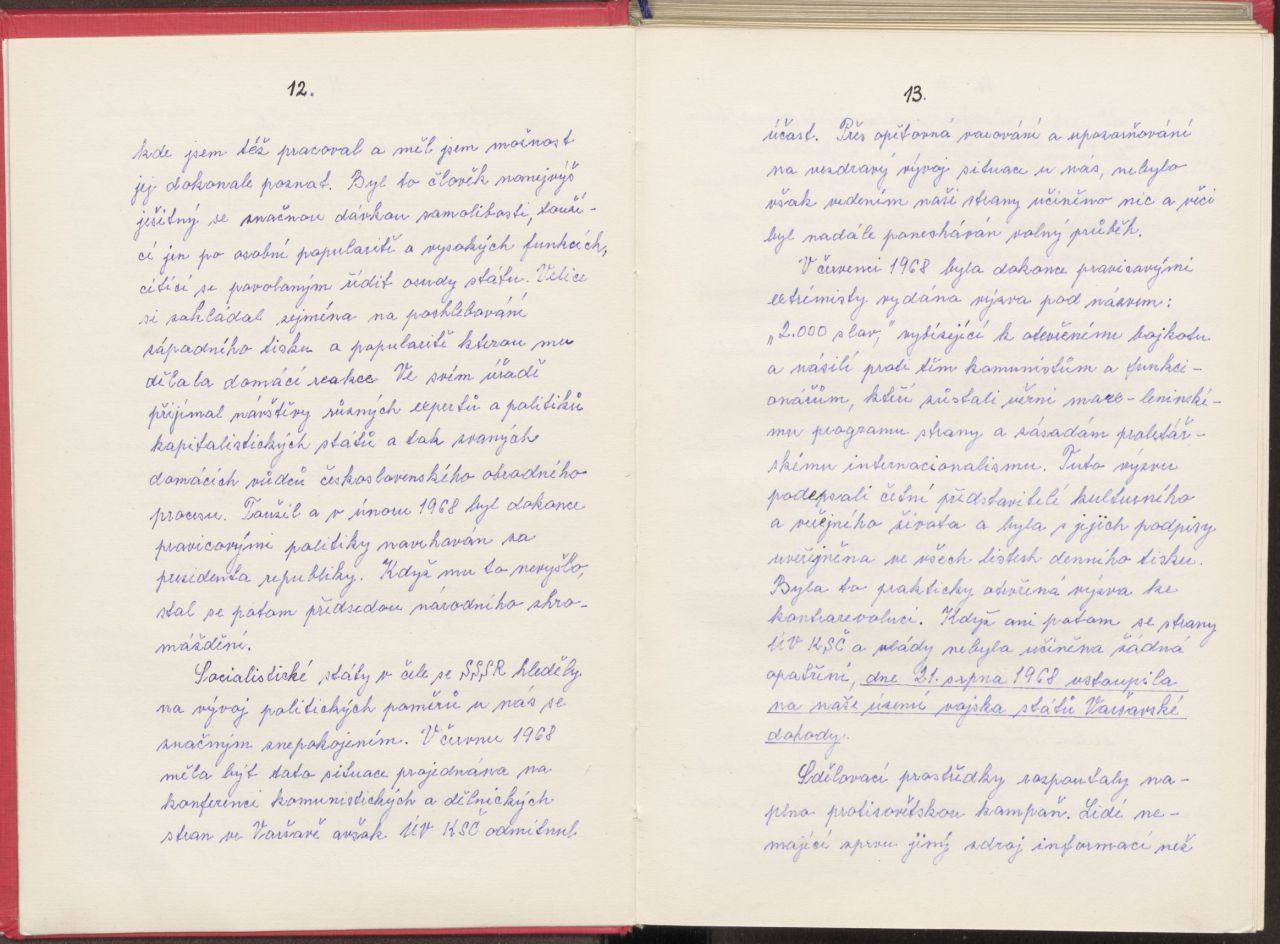 12.
kde jsem též pracoval a měl jsem možnost
jej dokonale poznat. Byl to člověk nanejvýš
ješitný se značnou dávkou samolibosti, touží-
cí jen po osobní popularitě a vysokých funkcích,
cítící se povolaným řídit osudy státu. Velice
si zakládal zejména na pochlebování
západního tisku a popularitě kterou mu
dělala domácí reakce. Ve svém úřadě
přijímal návštěvy různých expertů a politiků
kapitalistických států a tak zvaných
domácích vůdců československého obrodného
procesu. Toužil a v únoru 1968 byl dokonce
pravicovými politiky navrhován za
presidenta republiky. Když mu to nevyšlo,
stal se potom předsedou národního shro-
máždění.
Socialistické státy v čele se SSSR hleděly
na vývoj politických poměrů u nás se
značným znepokojením. V červnu 1968
měla být tato situace projednána na
konferenci komunistických a dělnických
stran ve Varšavě avšak ÚV KSČ odmítnul
13.
účast. Přes opětovná varování a upozorňování
na nezdravý vývoj situace u nás, nebylo
však vedením naší strany učiněno nic a věci
byl nadále ponecháván volný průběh.
V červenci 1968 byla dokonce pravicovými
extrémisty vydána výzva pod názvem:
„2.000 slov," vybízející k otevřenému bojkotu
a násilí proti těm komunistům a funkci-
onářům, kteří zůstali věrni marx-leninské-
mu programu strany a zásadám proletář-
skému internacionalismu. Tuto výzvu
podepsali četní představitelé kulturního
a veřejného života a byla s jejich podpisy
uveřejněna ve všech listech denního tisku.
Byla to prakticky otevřená výzva ke
kontrarevoluci. Když ani potom se strany
ÚV KSČ a vlády nebyla učiněna žádná
opatření, dne 21. srpna 1968 vstoupila
na naše území vojska států Varšavské
dohody.
Sdělovací prostředky rozpoutaly na-
plno protisovětskou kampaň. Lidé ne-
mající zprvu jiný zdroj informací než